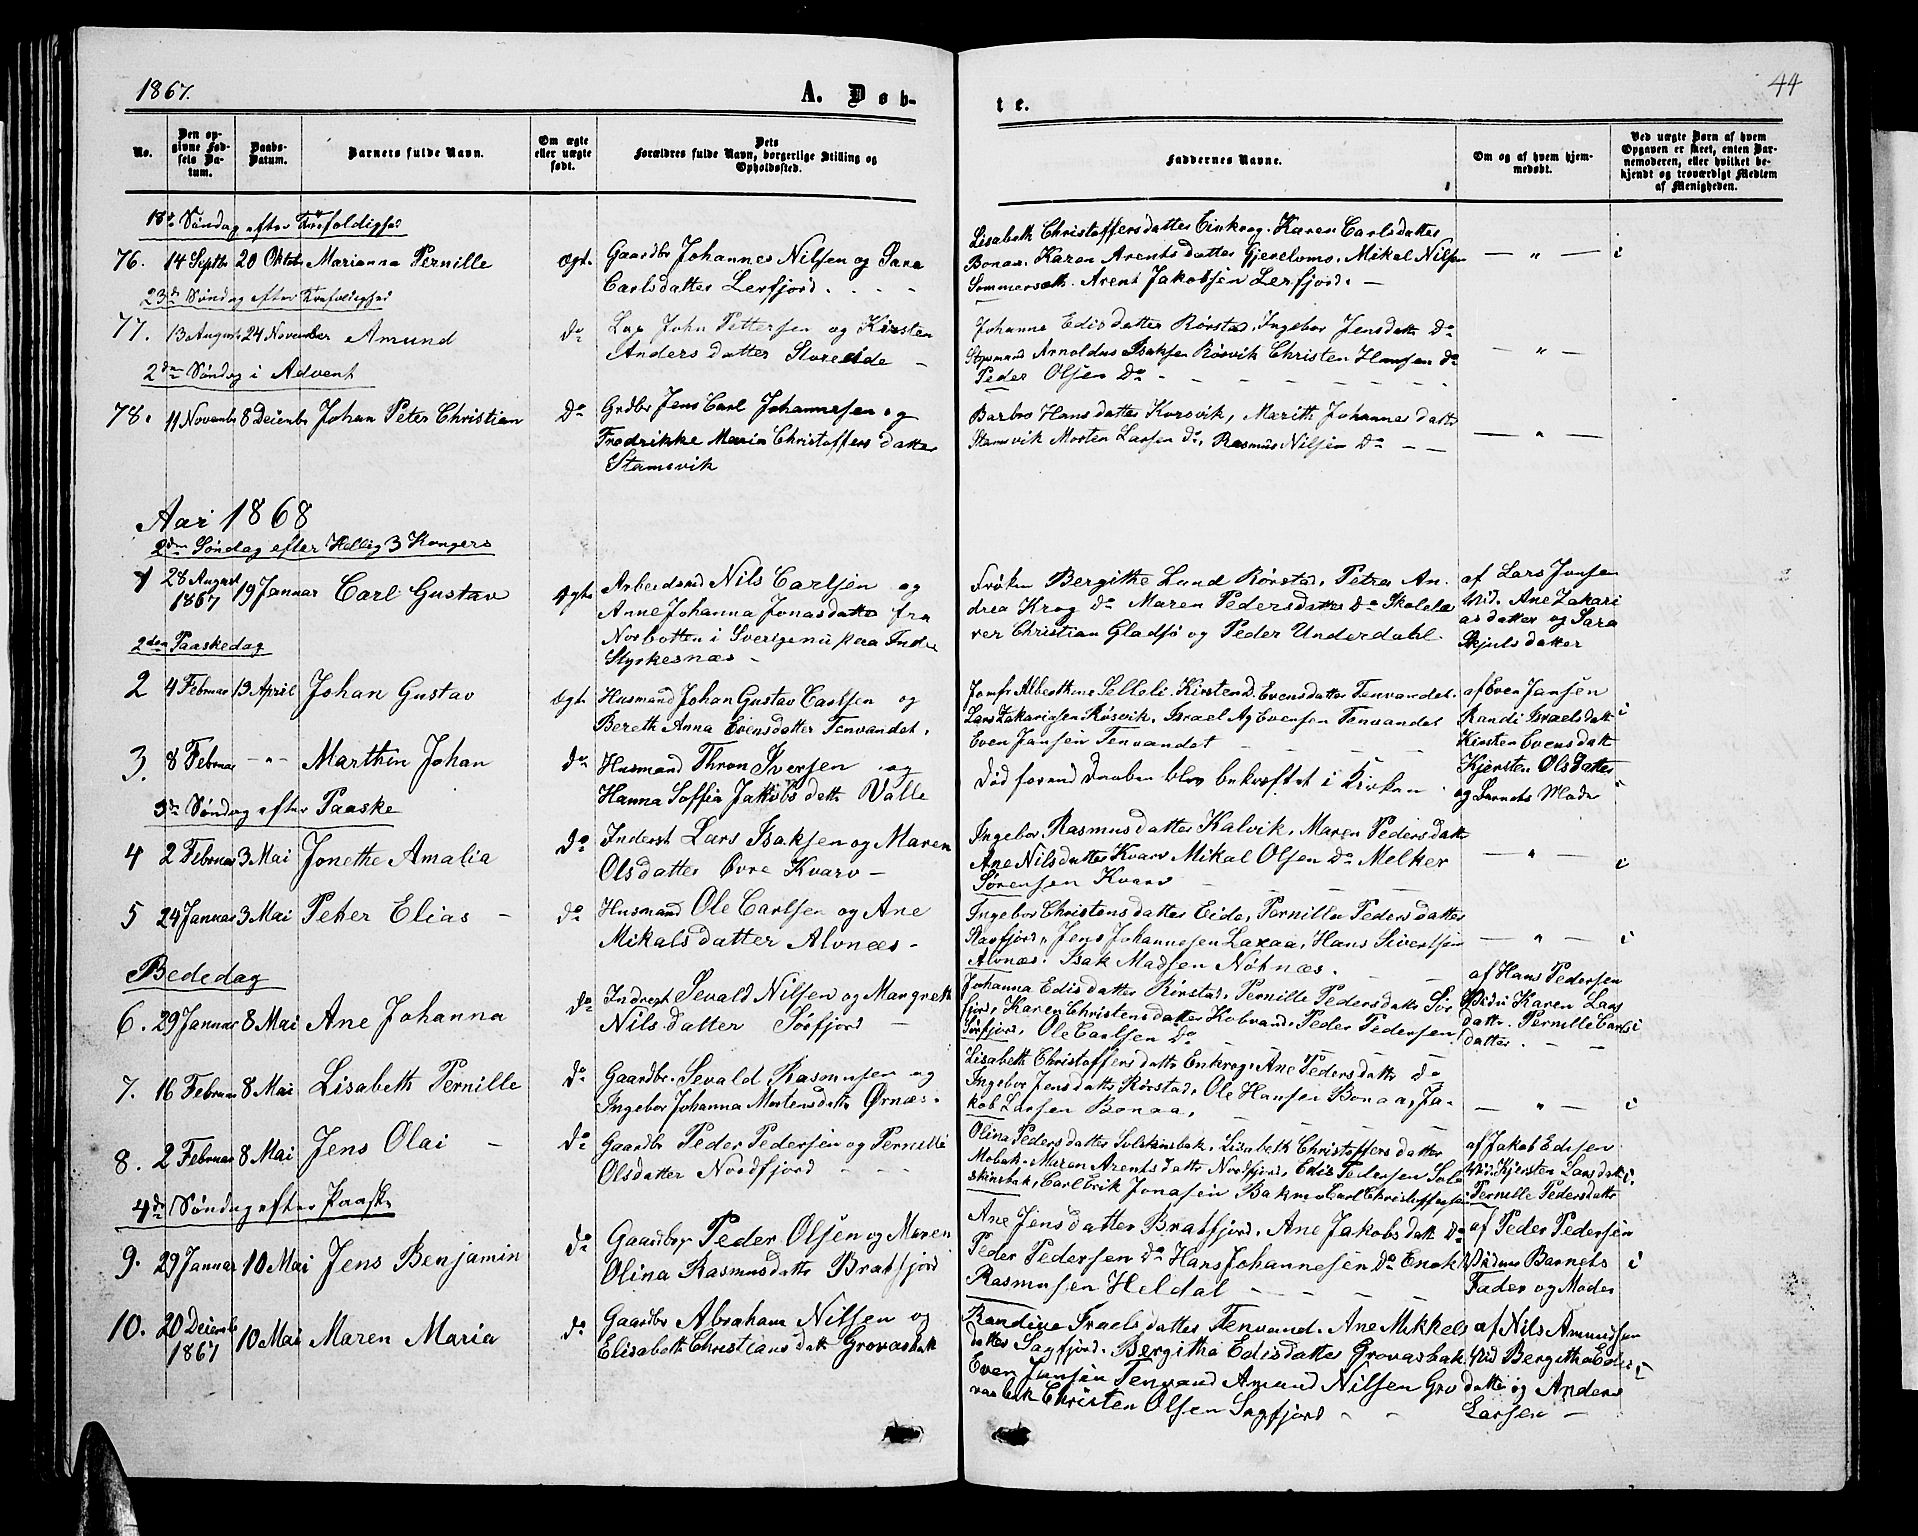 1867.
A. Døb-
te.
44
No.
Den opgivne Fødsels Datum.
Daabs-Datum.
Barnets fulde Navn.
Om ægte eller uægte født.
Dets Forældres fulde Navn, borgerlige Stilling og Opholdssted.
Faddernes Navne.
Om og af hvem hjemmedøbt.
Ved uægte Børn af hvem Opgaven er skeet, enten Barnemoderen, eller hvilket bekjendt og troværdigt Medlem af Menigheden.
18de Søndag efter Trefoldighed
76. 14 Septbr 20 Oktobr Marianna Pernille ægt. Gaardbr Johannes Nilsen og Sara
Carlsdatter Lerfjord. - - -
Lisabeth Christoffersdatter Einkrog. Karen Carlsdatter
Bonaa. Karen Arentsdatter Gjerelvmo. Mikal Nilsen
Sommersæth. Arent Jakobsen Lerfjord. -
— " — i
23de Søndag efter Trefoldighed
77. 13 August 24 November Amund do Lap John Pettersen og Kirsten
Andersdatter Storeide -
Johanna Edisdatter Rørstad, Ingebor Jensdattr Do
Styrmand Arnoldus Isaksen Røsvik Christen Hansen do
Peder Olsen Do - - - - - - -
— " —
2den Søndag i Advent
78. 11 Novembr 8 Decembr Johan Peter Christian Do Grdbr Jens Carl Johannesen og
Fredrikke Maria Christoffersdatter
Stamsvik
Barbro Hansdatter Korsvik, Marith Johannesdattr
Stamsvik Morten Larsen do, Rasmus Nilsen Do - -
— " —
Aar 1868
2den Søndag efter Hellig 3 Kongers
1 28 August 1867 19 Januar Carl Gustav ægt. Arbeidsmd Nils Carlsen og
Anne Johanna Jonasdatter fra
Norbotten i Sverige nu paa Indre
Styrkesnæs -
Frøken Bergithe Lund Rørstad, Petra An-
drea Krog do Maren Pedersdatter do Skolelæ
rer Christian Gladsø og Peder Underdahl.
af Lars Jonsen
Vid. Ane Zakari
asdatter og Sara
Skjulsdatter
2den Paaskedag
2 4 Februar 13 April Johan Gustav ægt. Husmand Johan Gustav Carlsen og
Bereth Anna Evensdatter Tenvandet.
Jomfr Alberthine Selleli. Kirsten D. Evensdatter Tenvandet.
Lars Zakariasen Røsvik. Israel Aj Evensen Tenvandet
Even Jansen Tenvandet - - - -
af Even Jansen
Randi Israelsdatt
Kirsten Evensdatt
i
3. 8 Februar - " - Marthin Johan do Husmand Thron Iversen og
Hanna Soffia Jakobsdattr Valle
Død forend Daaben blev bekræftet i Kirken.
Kjersten Olsdatter
og Barnets Moder
3de Søndag efter Paaske
4 2 Februar 3 Mai Jonethe Amalia do Inderst Lars Isaksen og Maren
Olsdatter Øvre Kvarv -
Ingebor Rasmusdatter Kalvik. Maren Pedersdattr
Ane Nilsdatter Kvarv Mikal Olsen do Melker
Sørensen Kvarv - - -
— " — i
5 24 Januar 3 Mai Peter Elias - do Husmand Ole Carlsen og Ane
Mikalsdatter Alvnæs -
Ingebor Christensdatter Eide, Pernilla Pedersdatter
Ragfjord, Jens Johannesen Laxaa, Hans Sivertsen
Alvnæs. Isak Madsen Nøtnæs. - -
— " — i
Bededag
6. 29 Januar 8 Mai Ane Johanna do Indregt Sevald Nilsen og Margreth
Nilsdatter Sørfjord -
Johanna Edisdatter Rørstad, Pernille Pedersdattr Sør
fjord, Karen Christensdatter Kobvand, Peder Pedersen
Sørfjord, Ole Carlsen Do - - -
af Hans Pedersen
Vidni Karen Lars
datter. Pernille Carls
datter. - -
i
7. 16 Februar 8 Mai Lisabeth Pernille do Gaardbr. Sevald Rasmusen og
Ingebor Johanna Mortensdattr Ørnæs.
Lisabeth Christoffersdattr Enkrog, Ane Pedersdattr do
Ingebor Jensdatter Rørstad, Ole Hansen Bonaa, Ja-
kob Larsen Bonaa, - - - -
— " — i
8. 2 Februar 8 Mai Jens Olai - Do Gaardbr Peder Pedersen og Pernille
Olsdatter Nordfjord - - -
Olina Pedersdatter Solskinsbak. Lisabeth Christoffersdatter
Mobak. Maren Arentsdattr Norfjord, Edis Pedersen Sol
skinsbak, Carl Erik Jonasen Bakmo Carl Christoffersen
af Jakob Edisen
Vid. Kjersten Larsdattr
Pernille Pedersdattr
i
4de Søndag efter Paaske
9. 29 Januar 10 Mai Jens Benjamin do Gaardbrgr Peder Olsen og Maren
Olina Rasmusdattr Bratfjord
Ane Jensdatter Bratfjord. Ane Jakobsdatt do
Peder Pedersen do Hans Johannesen do Enok
Rasmusen Heldal - - - -
af Peder Pedersen
Vidner Barnets
Fader og Moder
i
10. 20 Decembr 1867 10 Mai Maren Maria do Gaardbr Abraham Nilsen og
Elisabeth Christiansdatt Grovasbak
Randine Israelsdatter Tenvand. Ane Mikkels
datter Sagfjord. Bergitha Edisdatter Grovasbak
Even Jansen Tenvand Amund Nilsen Gro
vasbak Christen Olsen Sagfjord - -
af Nils Amundsen
Vid Bergitha Edis
datter og Anders
Larsen -
i